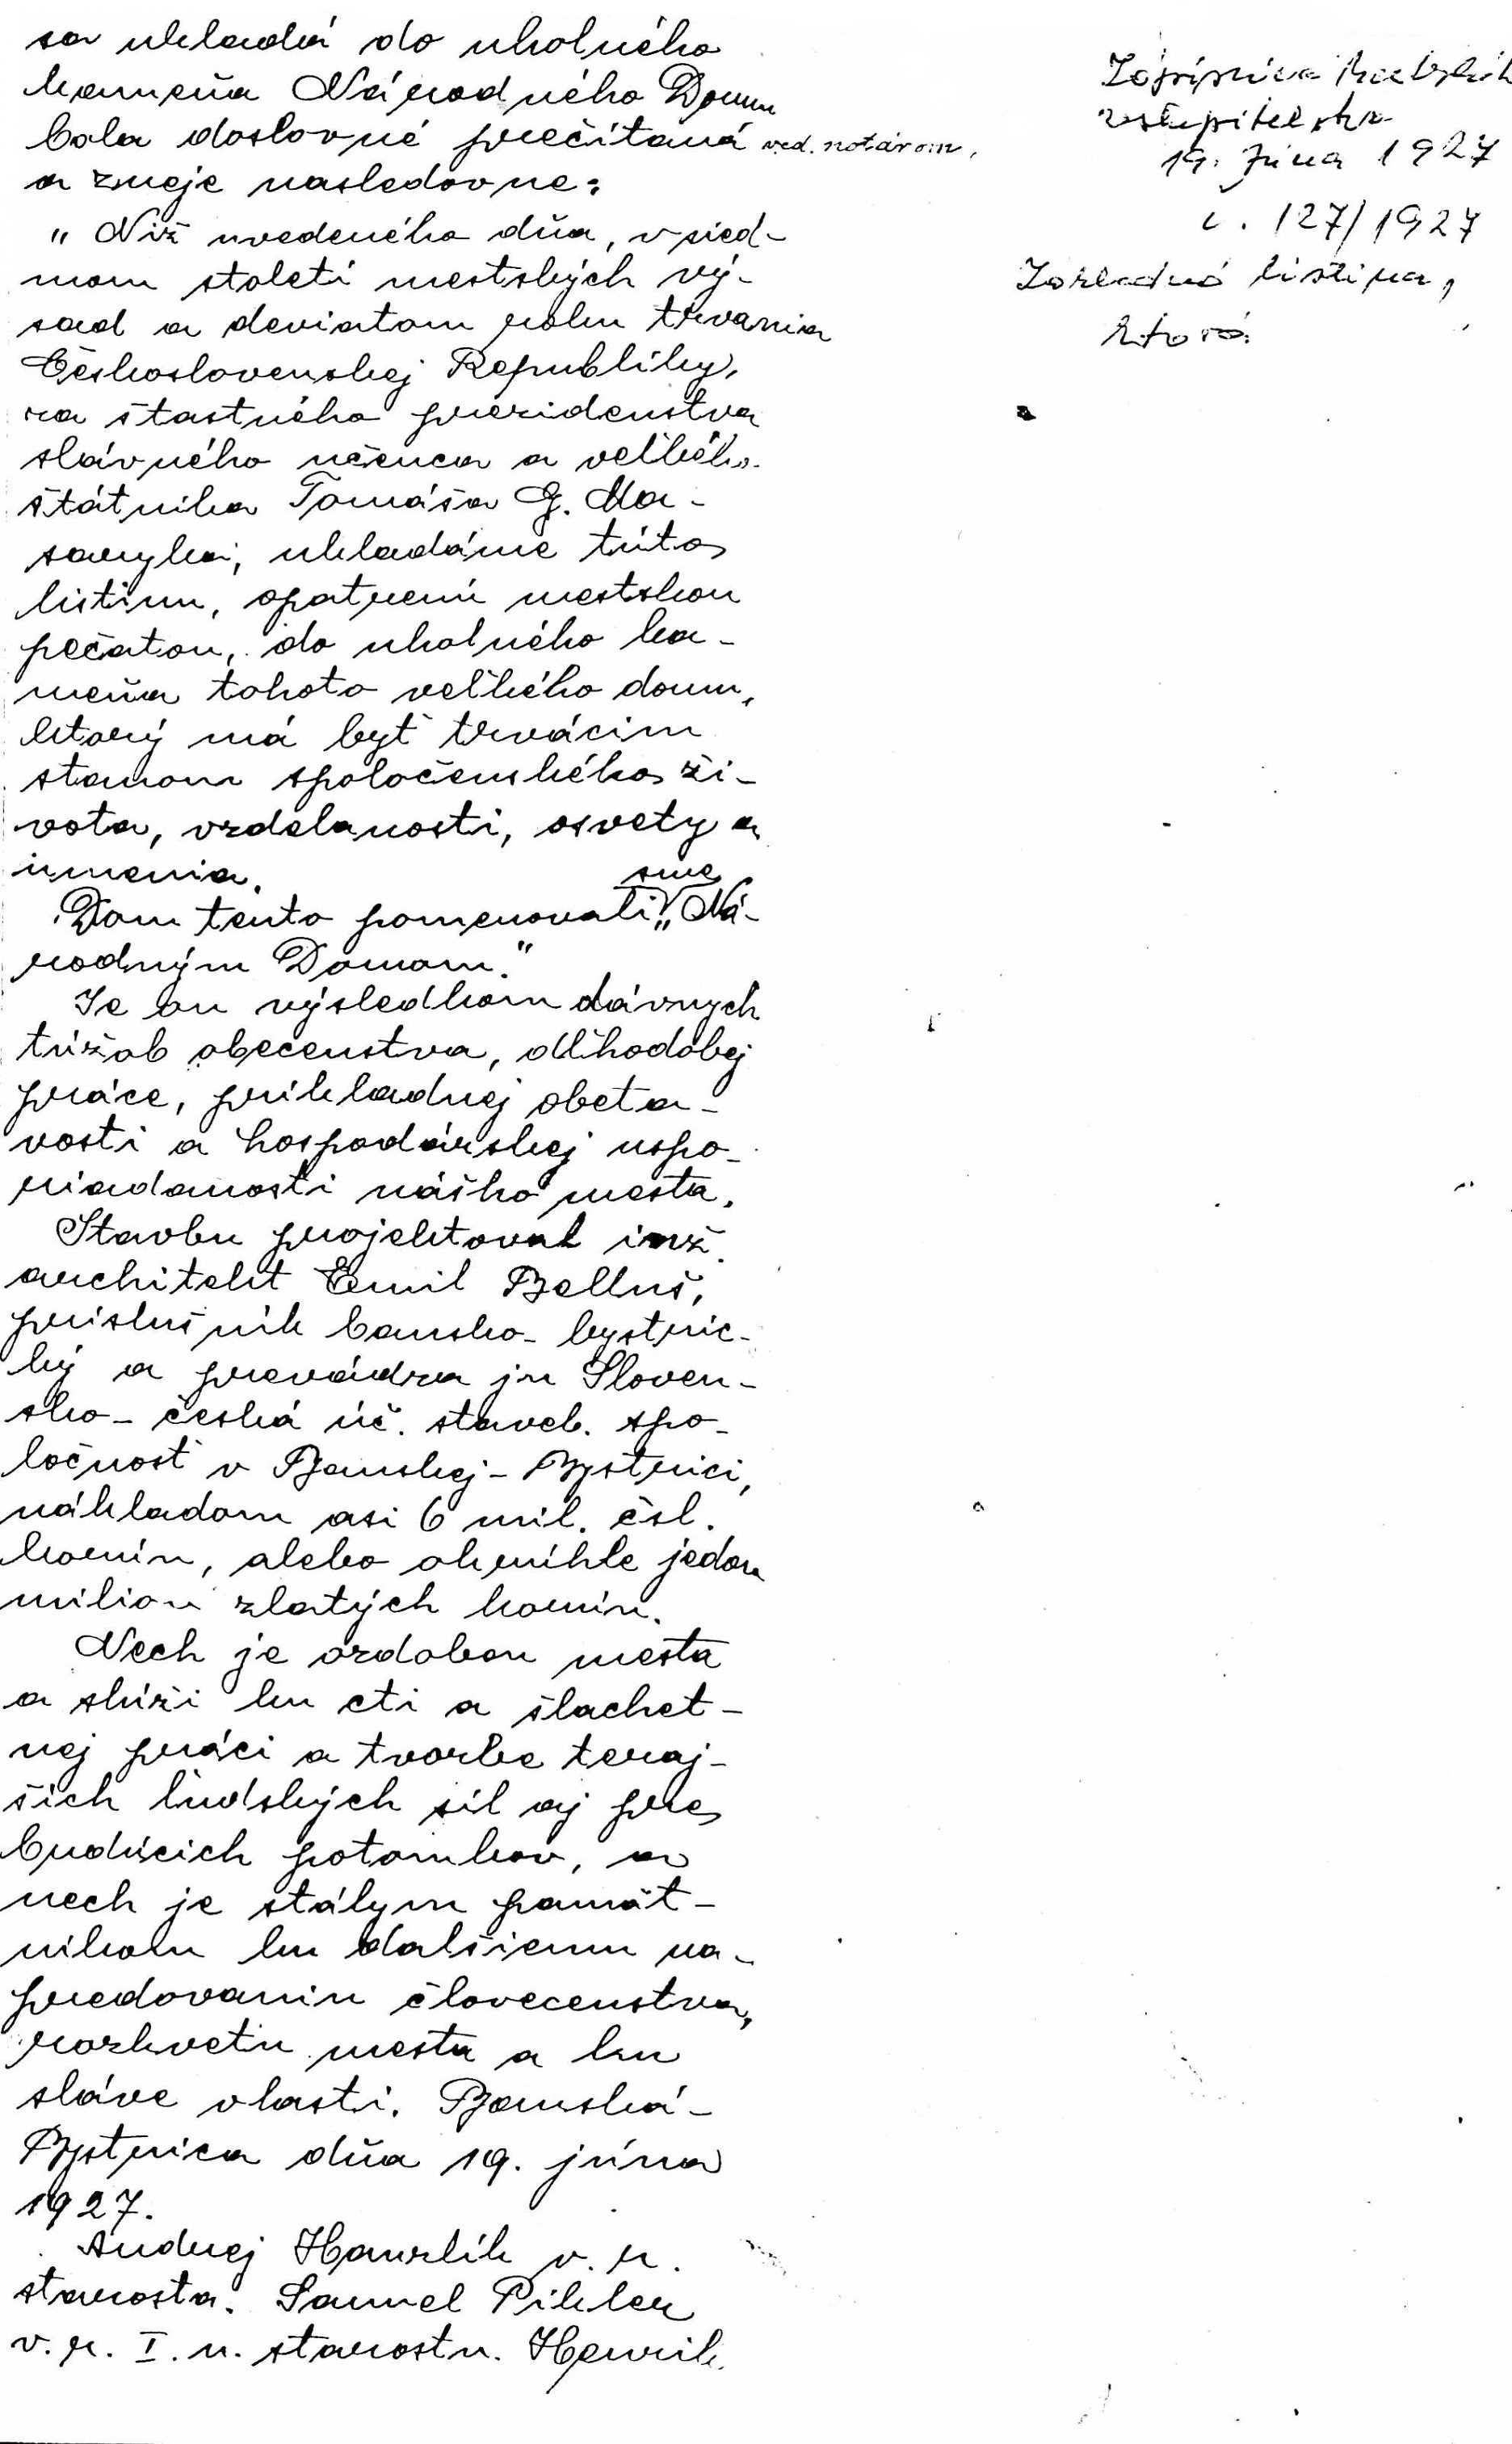 sa ukladá do uholného
kameňa Národného Domu
bola doslovné prečítaná ved. notárom,
a zneje nasledovne:
„ Niž uvedeného dňa, v sied-
mom století mestských vý-
sad a deviatom roku trvania
Československej Republiky,
za štastného prezidenstva
slávného učenca a veľkého
štátnika Tomáša G. Ma-
saryka, ukladáme túto
listinu, opatrenú mestskou
pečatou, do uholného ka-
meňa tohoto veľkého domu,
ktorý má byť trvácim
stanom spoločenského ži-
vota, vzdelanosti, osvety a
umenia.
sme
Dom tento pomenovali „Ná-
rodným Domom."
Je on výsledkom dávnych
túžob obecenstva, dlhodobej
práce, príkladnej obeta-
vosti a hospodárskej uspo-
riadanosti nášho mesta.
Stavbu projektoval inž.
architekt Emil Belluš,
príslušník bansko-bystric-
ký a prevádza ju Sloven-
sko-česká úč. staveb. spo-
ločnosť v Banskej-Bystrici,
nákladom asi 6 mil. čsl.
korún, alebo okrúhle jedon
milion zlatých korún.
Nech je ozdobou mesta
a slúži ku cti a šlachet-
nej práci a tvorbe teraj-
ších ľudských síl aj pre
budúcich potomkov, a
nech je stálym pamät-
níkom ku dalšiemu na-
predovaniu človecenstva,
rozkvetu mesta a ku
sláve vlasti. Banská-
Bystrica dňa 19. júna
1927.
Andrej Hanzlík v. r.
starosta. Samuel Pikler
v. r. I. n. starostu. Henrik
Zápisnica
zastupitelstva
19. Júna 1927
č. 127/1927
Zakladná listina,
ktorá